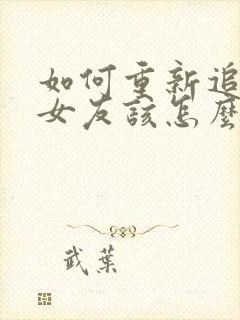 如何重新追
女友該怎麼
武葉